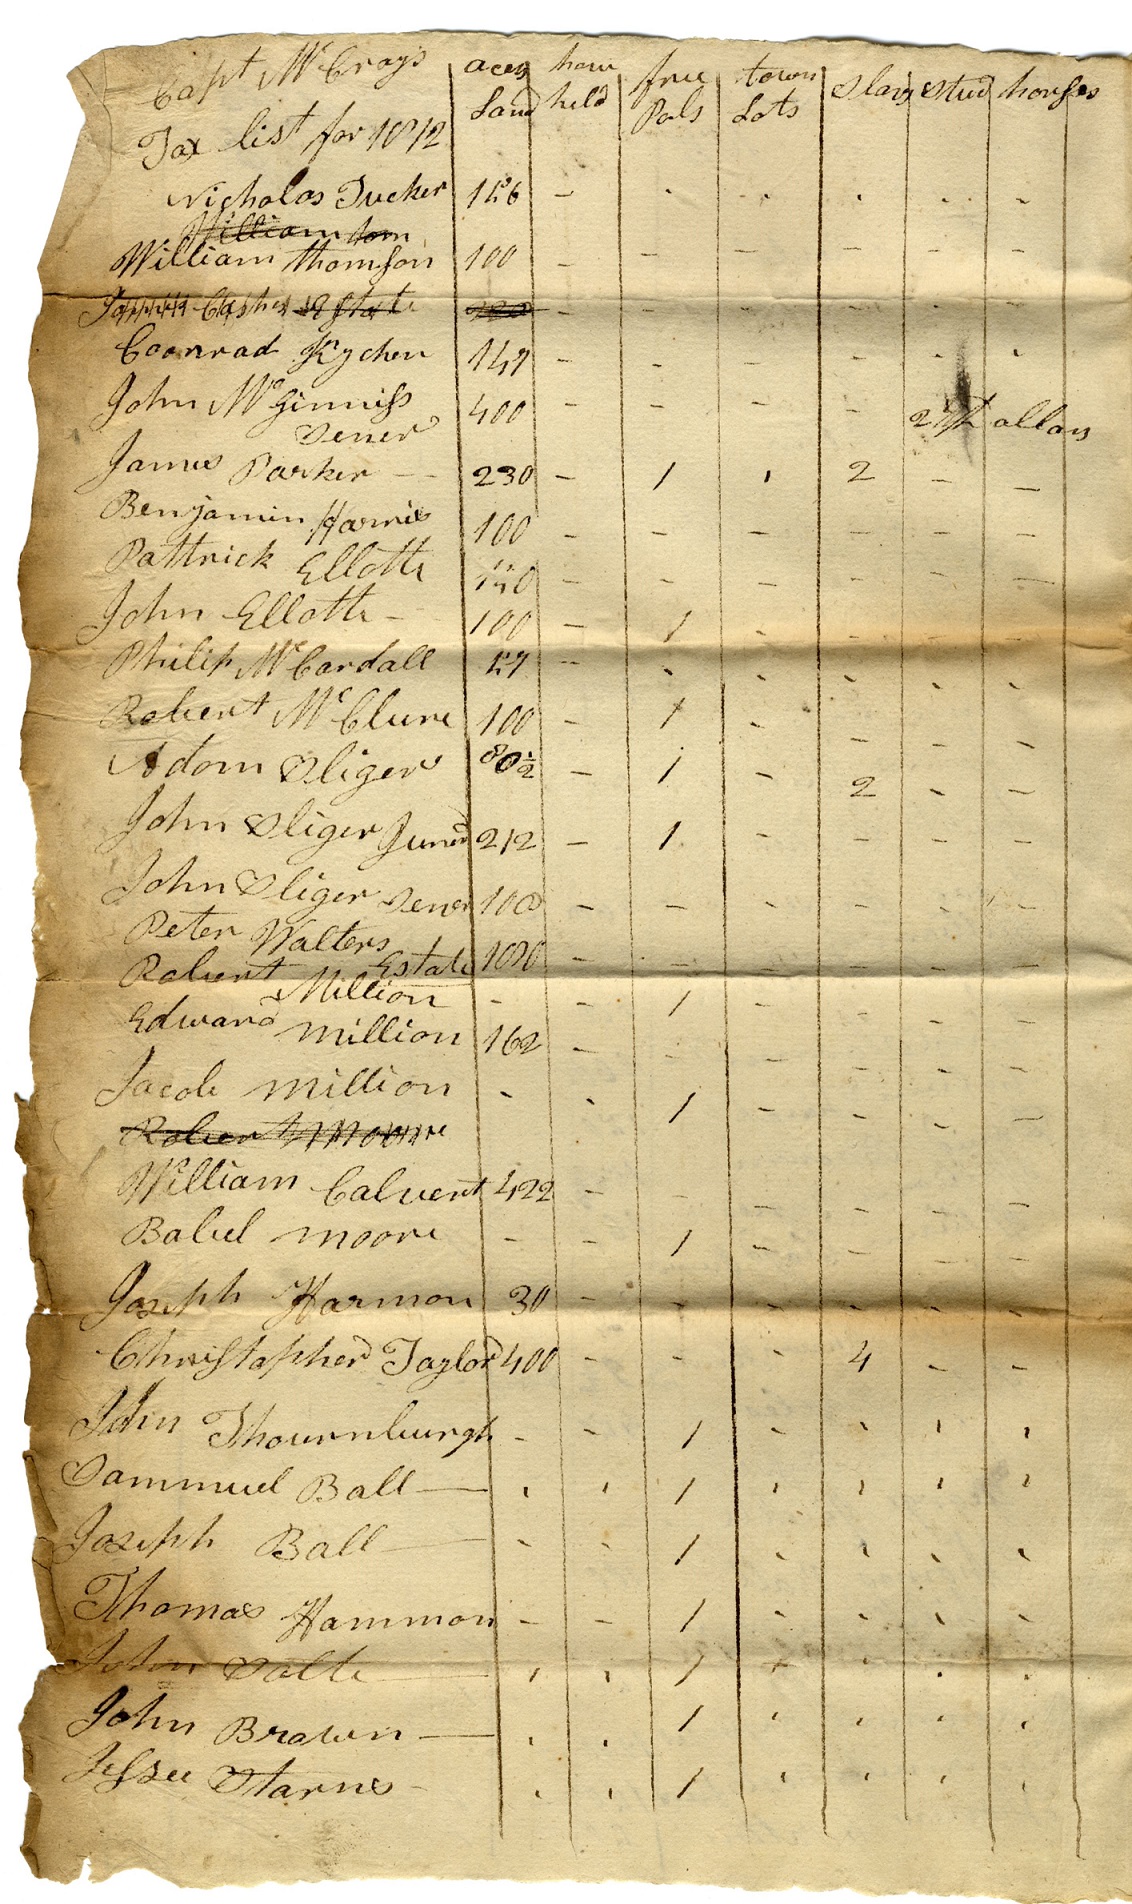 Capt McCrays acers how free town Slavs Stud horses
Tax list for 1812 Land held Pols Lots
Nicholas Tucker 156 - - - - - -
William tom
William thomson 100 - - - - - -
Estate - - - - - -
Coonrad Kychen 147 - - - - - -
John McGinniss 400 - - - - 2 dollars
Sener
James Parker -- 230 - 1 - 2 - -
Benjamin Harris 100 - - - - - -
Pattrick Ellotte 150 - - - - - -
John Ellotte - 100 - 1 - - - -
Philip McCardall 57 - - - - - -
Robert McClure 100 - 1 - - - -
Adom Sliger 80 1/2 - 1 - 2 - -
John Sliger Juner 212 - 1 - - - -
John Sliger Sener 100 - - - - - -
Peter Walters
Estate 1020 - - - - - -
Robert Million - - 1 - - - -
Edward Million 162 - - - - - -
Jacob Million - - 1 - - - -
Robert Moore
William Calvert 422 - - - - - -
Babel Moore - - 1 - - - -
Joseph Harmon 30 - - - - - -
Christapher Taylor 400 - - - 4 - -
John Thournburgh - - 1 - - - -
Sammuel Ball - - - 1 - - - -
Joseph Ball - - - 1 - - - -
Thomas Hammon - - 1 - - - -
John Salte - - - 1 - - - -
John Brown - - - 1 - - - -
Jessee Starnes - - - 1 - - - -